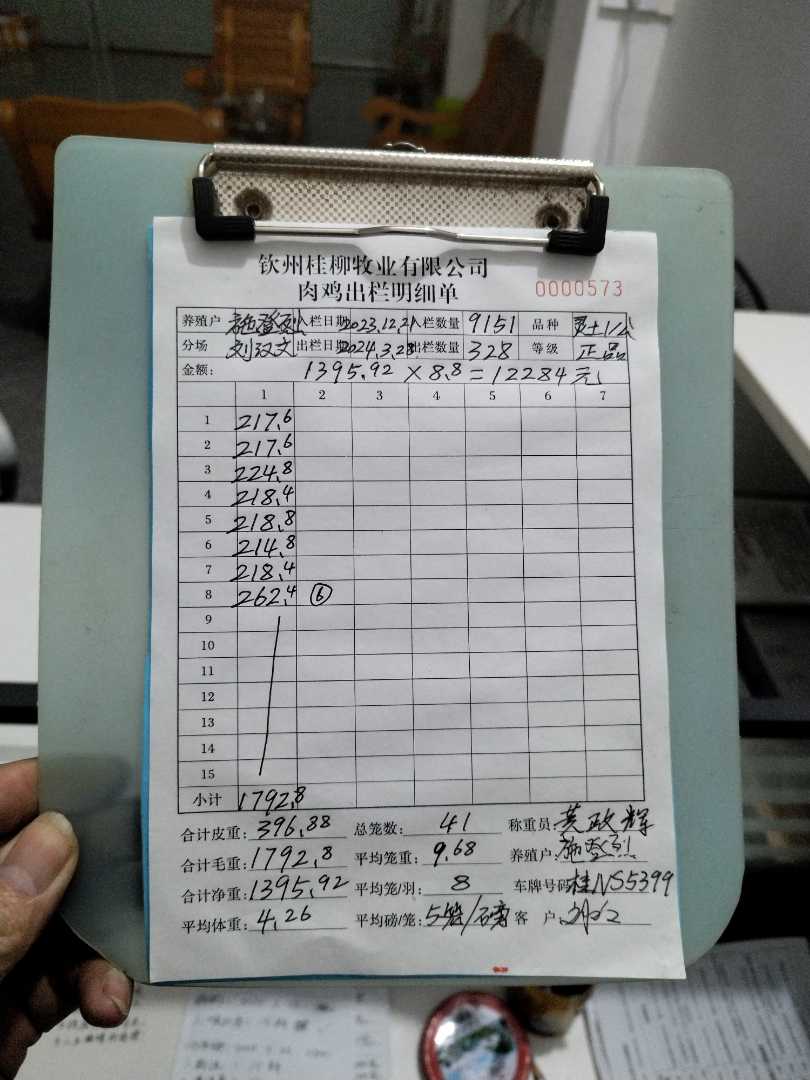 钦州桂柳牧业有限公司
肉鸡出栏明细单 0000573
养殖户 施登烈 入栏日期 2023.12.21 入栏数量 9151 品种
分场 刘汉文 出栏日期 2024.3.28 出栏数量 328 等级 正品
金额: 1395.92 × 8.8 = 12284元
1 2 3 4 5 6 7
1 217.6
2 217.6
3 224.8
4 218.4
5 218.8
6 214.8
7 218.4
8 262.4 ⑥
9
10
11
12
13
14
15
小计 1792.8
合计皮重: 396.88 总笼数: 41 称重员: 黄政辉
合计毛重: 1792.8 平均笼重: 9.68 养殖户: 施登烈
合计净重: 1395.92 平均笼/羽: 8 车牌号码: 桂NS5399
平均体重: 4.26 平均磅/笼: 5笼/磅 客 户: